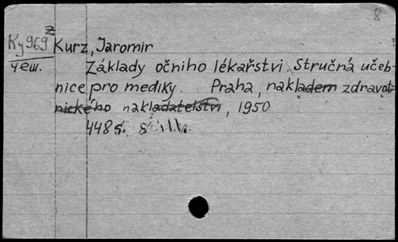 8
Ky969 z Kurz, Jaromir
чеш. Základy očniho lékařstvi. Stručná učeb-
nice pro mediky. Praha, nakladem zdravot-
nického nakladatelstvi, 1950
448 s.